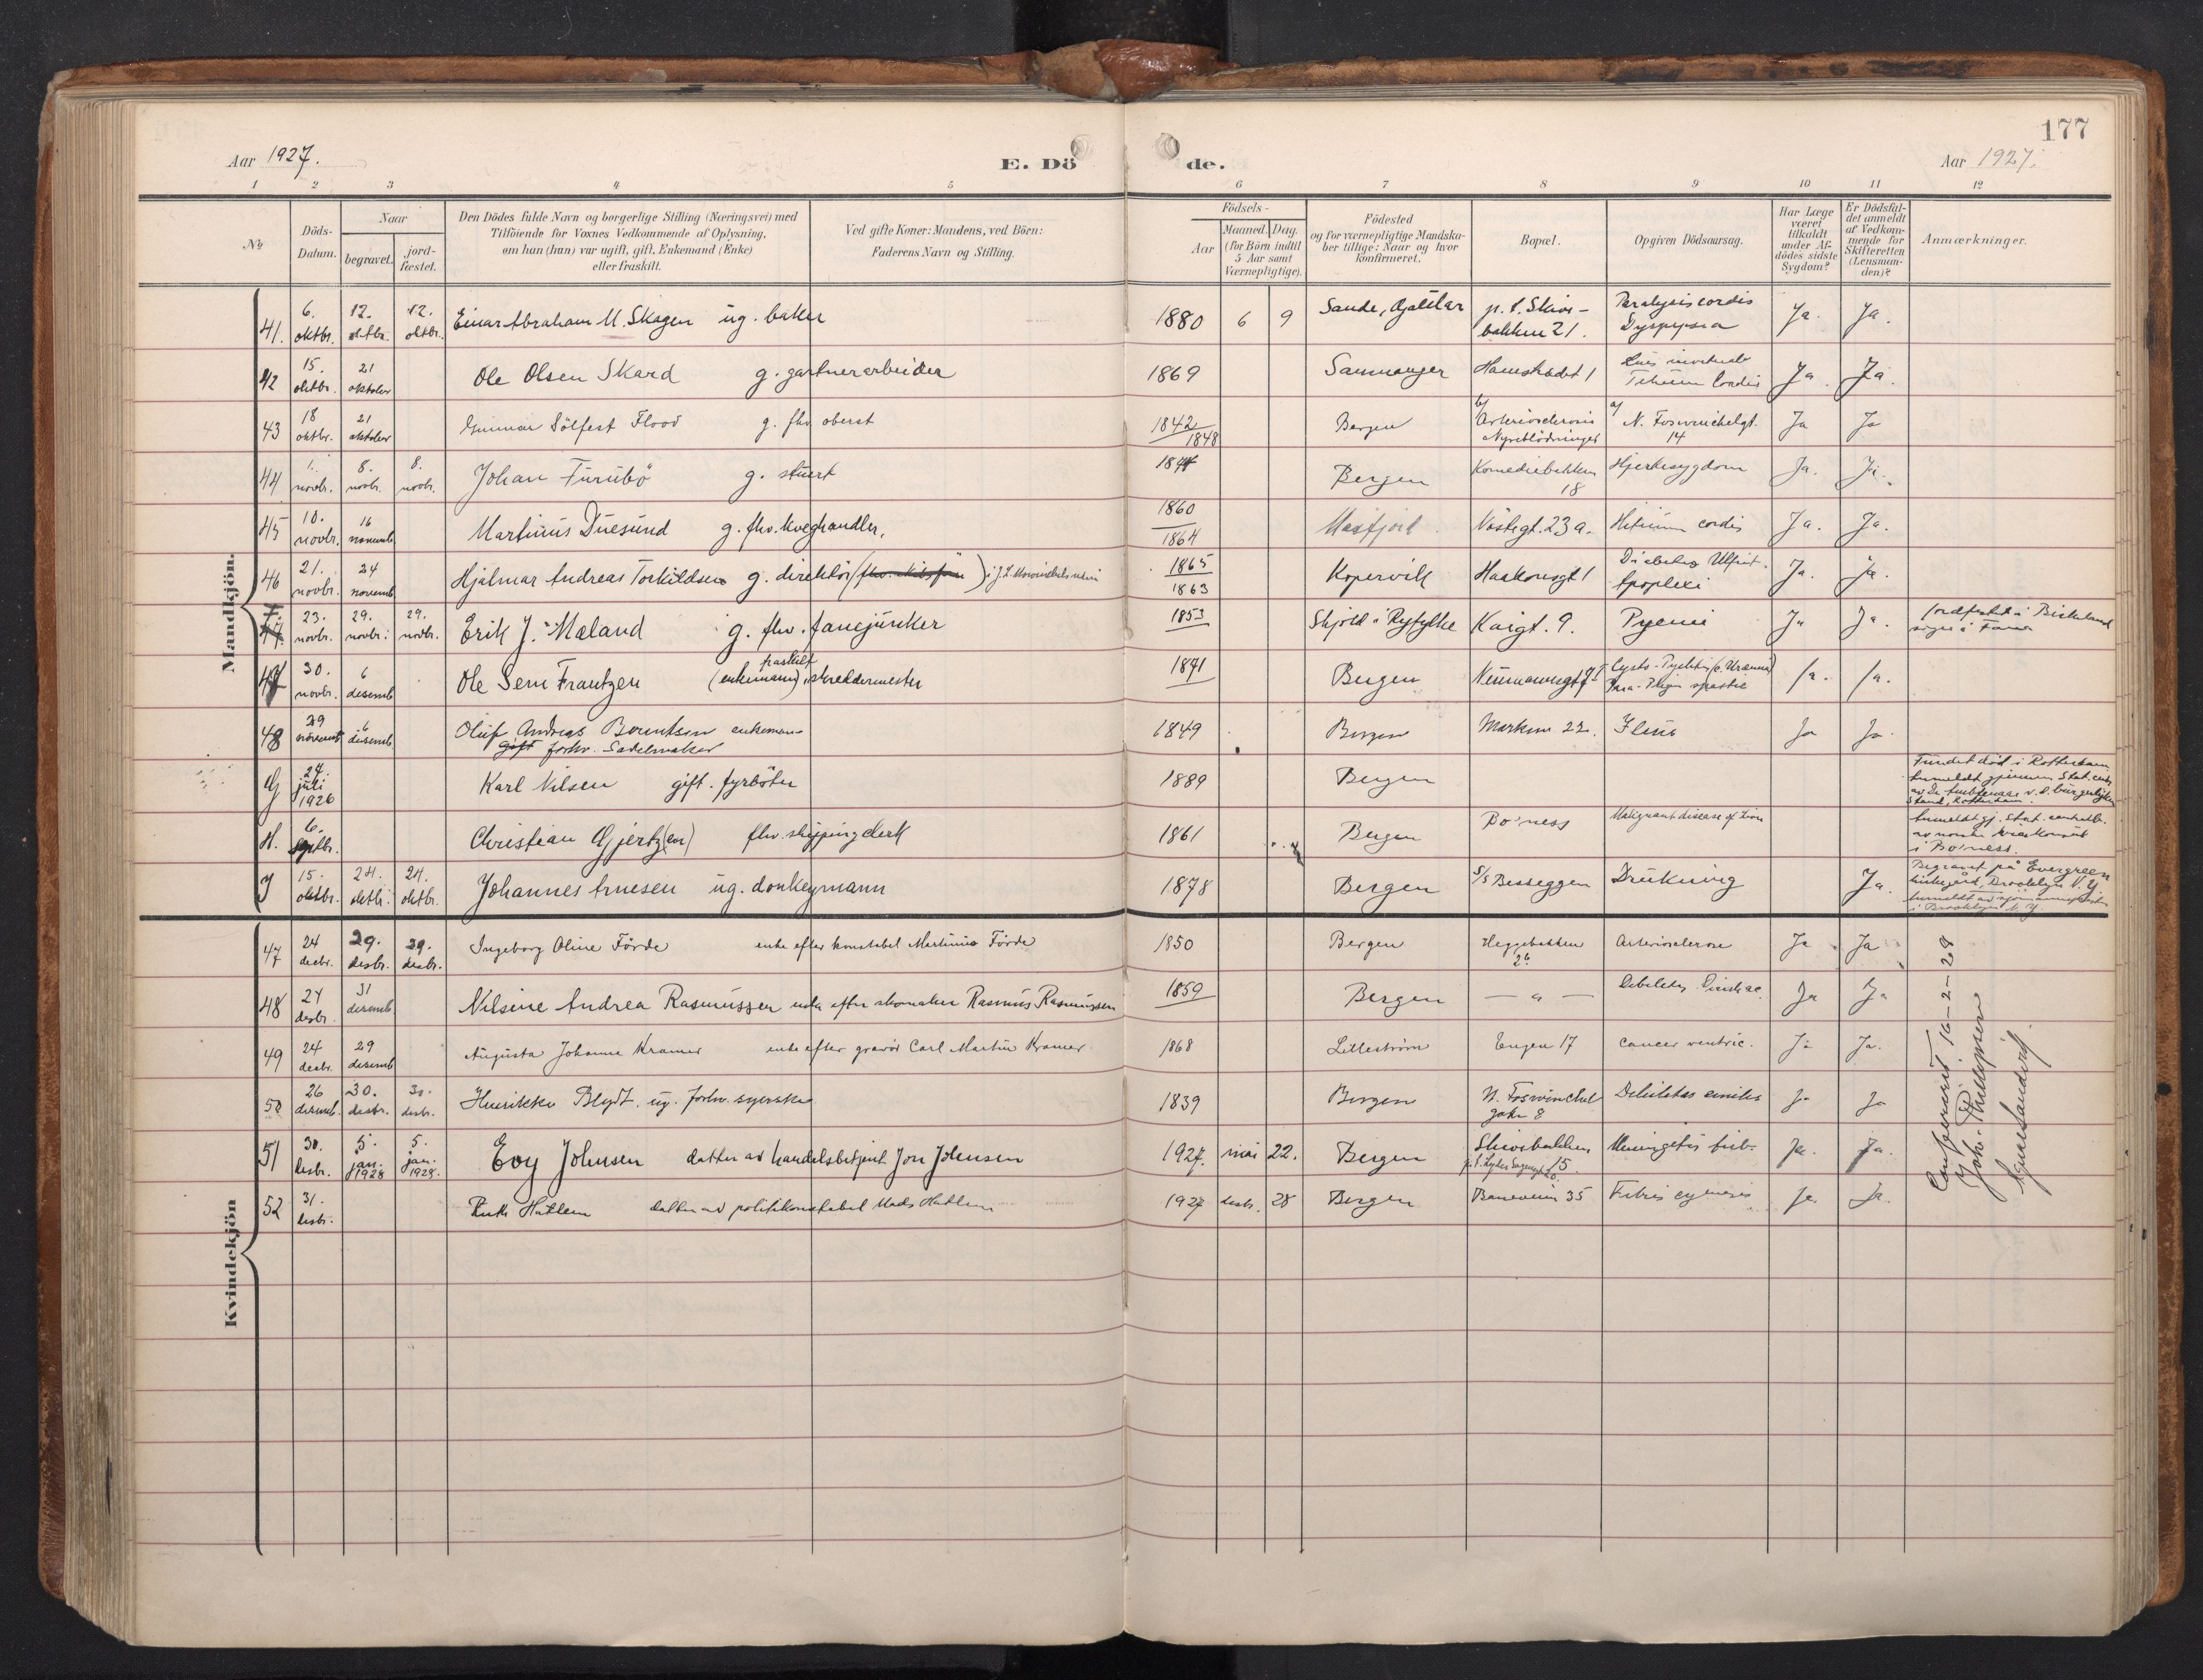 177
Aar 1927.
E. Dö de.
Aar 1927.
1 2 3 4 5 6 7 8 9 10 11 12
No
Döds-Datum.
Naar
begravet.
jord-fæstet.
Den Dödes fulde Navn og borgerlige Stilling (Næringsvei) med
Tilföiende for Voxnes Vedkommende af Oplysning,
om han (hun) var ugift, gift, Enkemand (Enke)
eller fraskilt.
Ved gifte Koner: Mandens, ved Börn:
Faderens Navn og Stilling.
Födsels-
Aar
Maaned. Dag.
(for Börn indtil
5 Aar samt
Værnepligtige).
Födested
og for værnepligtige Mandska-
ber tillige: Naar og hvor
konfirmeret.
Bopæl.
Opgiven Dödsaarsag.
Har Læge
været
tilkaldt
under Af-
dödes sidste
Sygdom?
Er Dödsfal-
det anmeldt
af Vedkom-
mende for
Skifteretten
(Lensman-
den)?
Anmærkninger.
Mandkjön.
41. 6. oktbr. 12. oktbr. 12. oktbr. Einar Abraham M. Skagen ug. baker 1880 6 9 Sande, p. t. Skivebakken 21. Paralysis cordis Dyspepsia Ja. Ja.
42 15. oktbr. 21 oktober Ole Olsen Skard g. gartnerarbeider 1869 Samnanger 1 Cordis Ja. Ja.
43 18 oktbr. 21 oktober Gunnar Sölfest Flood g. fhv. oberst 1842 1848 Bergen b) Arteriosclerosis Nyreblödninger a) N. Fosswinckelgt. 14 Ja Ja
44 1. novbr. 8. novbr. 8. novbr. Johan Furubö g. stuert Bergen Komediebakken 18 Hjertesygdom Ja. Ja.
45 10. novbr. 16 novemb. Martinus Duesund g. fhv. kveghandler, 1860 1864 Masfjord Nöstegt. 23 a. cordis Ja. Ja.
46 21. novbr. 24 novemb. Hjalmar Andreas Torkildsen g. direktör 1865 1863 Kopervik Haakonsgt 1 Diabetes Apoplexi Ja. Ja.
47 23. novbr. 29. novbr. 29. novbr. Erik J. Mæland g. fhv. fanejunker 1853 Skjold i Ryfylke Kaigt. 9. Pyemi Ja Ja. Jordfestet i Birkeland sogn i Fana
47 30. novbr. 6 desemb. Ole Sem Frantzen (enkemann) fraskilt skreddermester 1871 Bergen Neumannsgt Ja. Ja.
48 29 novemb. 6 desemb. Oluf Andreas Berntsen enkemann
gift forhv. Sadelmaker 1849 Bergen Marken 22. Ileus Ja Ja.
G 24. juli 1926 Karl Nilsen gift. fyrböter 1889 Bergen Fundet död i Rotterdam.
Anmeldt gjennem Stat. centr.
H. 6. septbr. Christian Gjertz(en) fhv. shipping clerk 1861 Bergen Bo'ness Malignant disease of Anmeldt gj. Stat. centralb.
av norsk visekonsul
i Bo'ness.
J 15. oktbr. 24. oktbr. 24. oktbr. Johannes Arnesen ug. donkeymann 1878 Bergen S/S Besseggen Drukning Ja. Begravet på Evergreen
kirkegård, Brooklyn N. Y.
i Brooklyn N. Y.
Kvindekjön
47 24 decbr. 29. desbr. 29. desbr. Ingeborg Oline Förde enke efter konstabel Martinius Förde 1850 Bergen Heggebakken 26 Arteriosclerose Ja Ja
48 24 desbr. 31 desemb. Nilsine Andrea Rasmussen enke efter skomaker Rasmus Rasmussen 1859 Bergen — " — Ja Ja
49 24 decbr. 29 desemb. Augusta Johanne Kramer enke efter gravör Carl Martin Kramer. 1868 Lilleström Engen 17 Cancer ventric. Ja Ja.
50 26 desemb. 30. desbr. 30. desbr. Henrikke Blydt. ug. forhv. syerske 1839 Bergen N. Fosswinckel gate 8 Debilitas senilis Ja Ja
51 30. desbr. 5. jan. 1928 5. jan. 1928. Evy Johnsen datter av handelsbetjent Jon Johnsen 1927. mai 22. Bergen Skivebakken 15 Meningitis tub. Ja. Ja.
52 31. desbr. Ruth Hatlem datter av politikonstabel Mads Hatlem 1927 desbr. 28 Bergen Baneveien 35 Ja. Ja.
16-2-28
Joh. Phillipsen